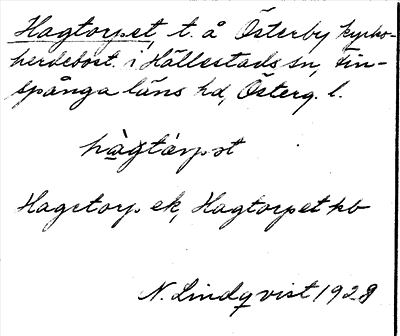 Hagtorpet t. å Österby kyrko-
herdebost. i Hällestads sn, Fin-
spånga läns hd, Österg. l.
hàgtårpət
Hagstorp ek, Hagtorpet kb
N. Lindqvist 1928